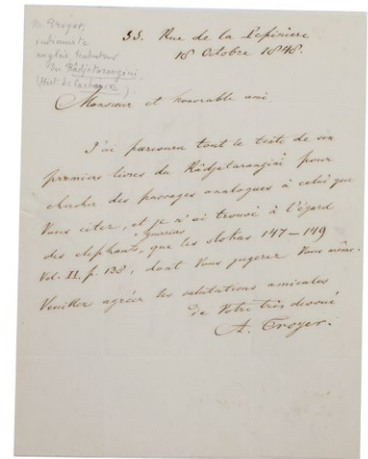 M. Troyer,
indianiste
anglais, traducteur
du Râdjatarangini
(Hist. de Cachemire).
33. Rue de la Pépinière
18 Octobre 1848.
Monsieur et honorable ami,
J'ai parcouru tout le texte de six
premiers livres du Râdjatarangini pour
chercher des passages analogues à celui que
Vous citez, et je n'ai trouvé à l'égard
des elephants, que les slokas 147-149
Vol. II. p. 138, dont Vous jugerez Vous-même.
Veuillez agréer les salutations amicales
de Votre très devoué
A. Troyer.